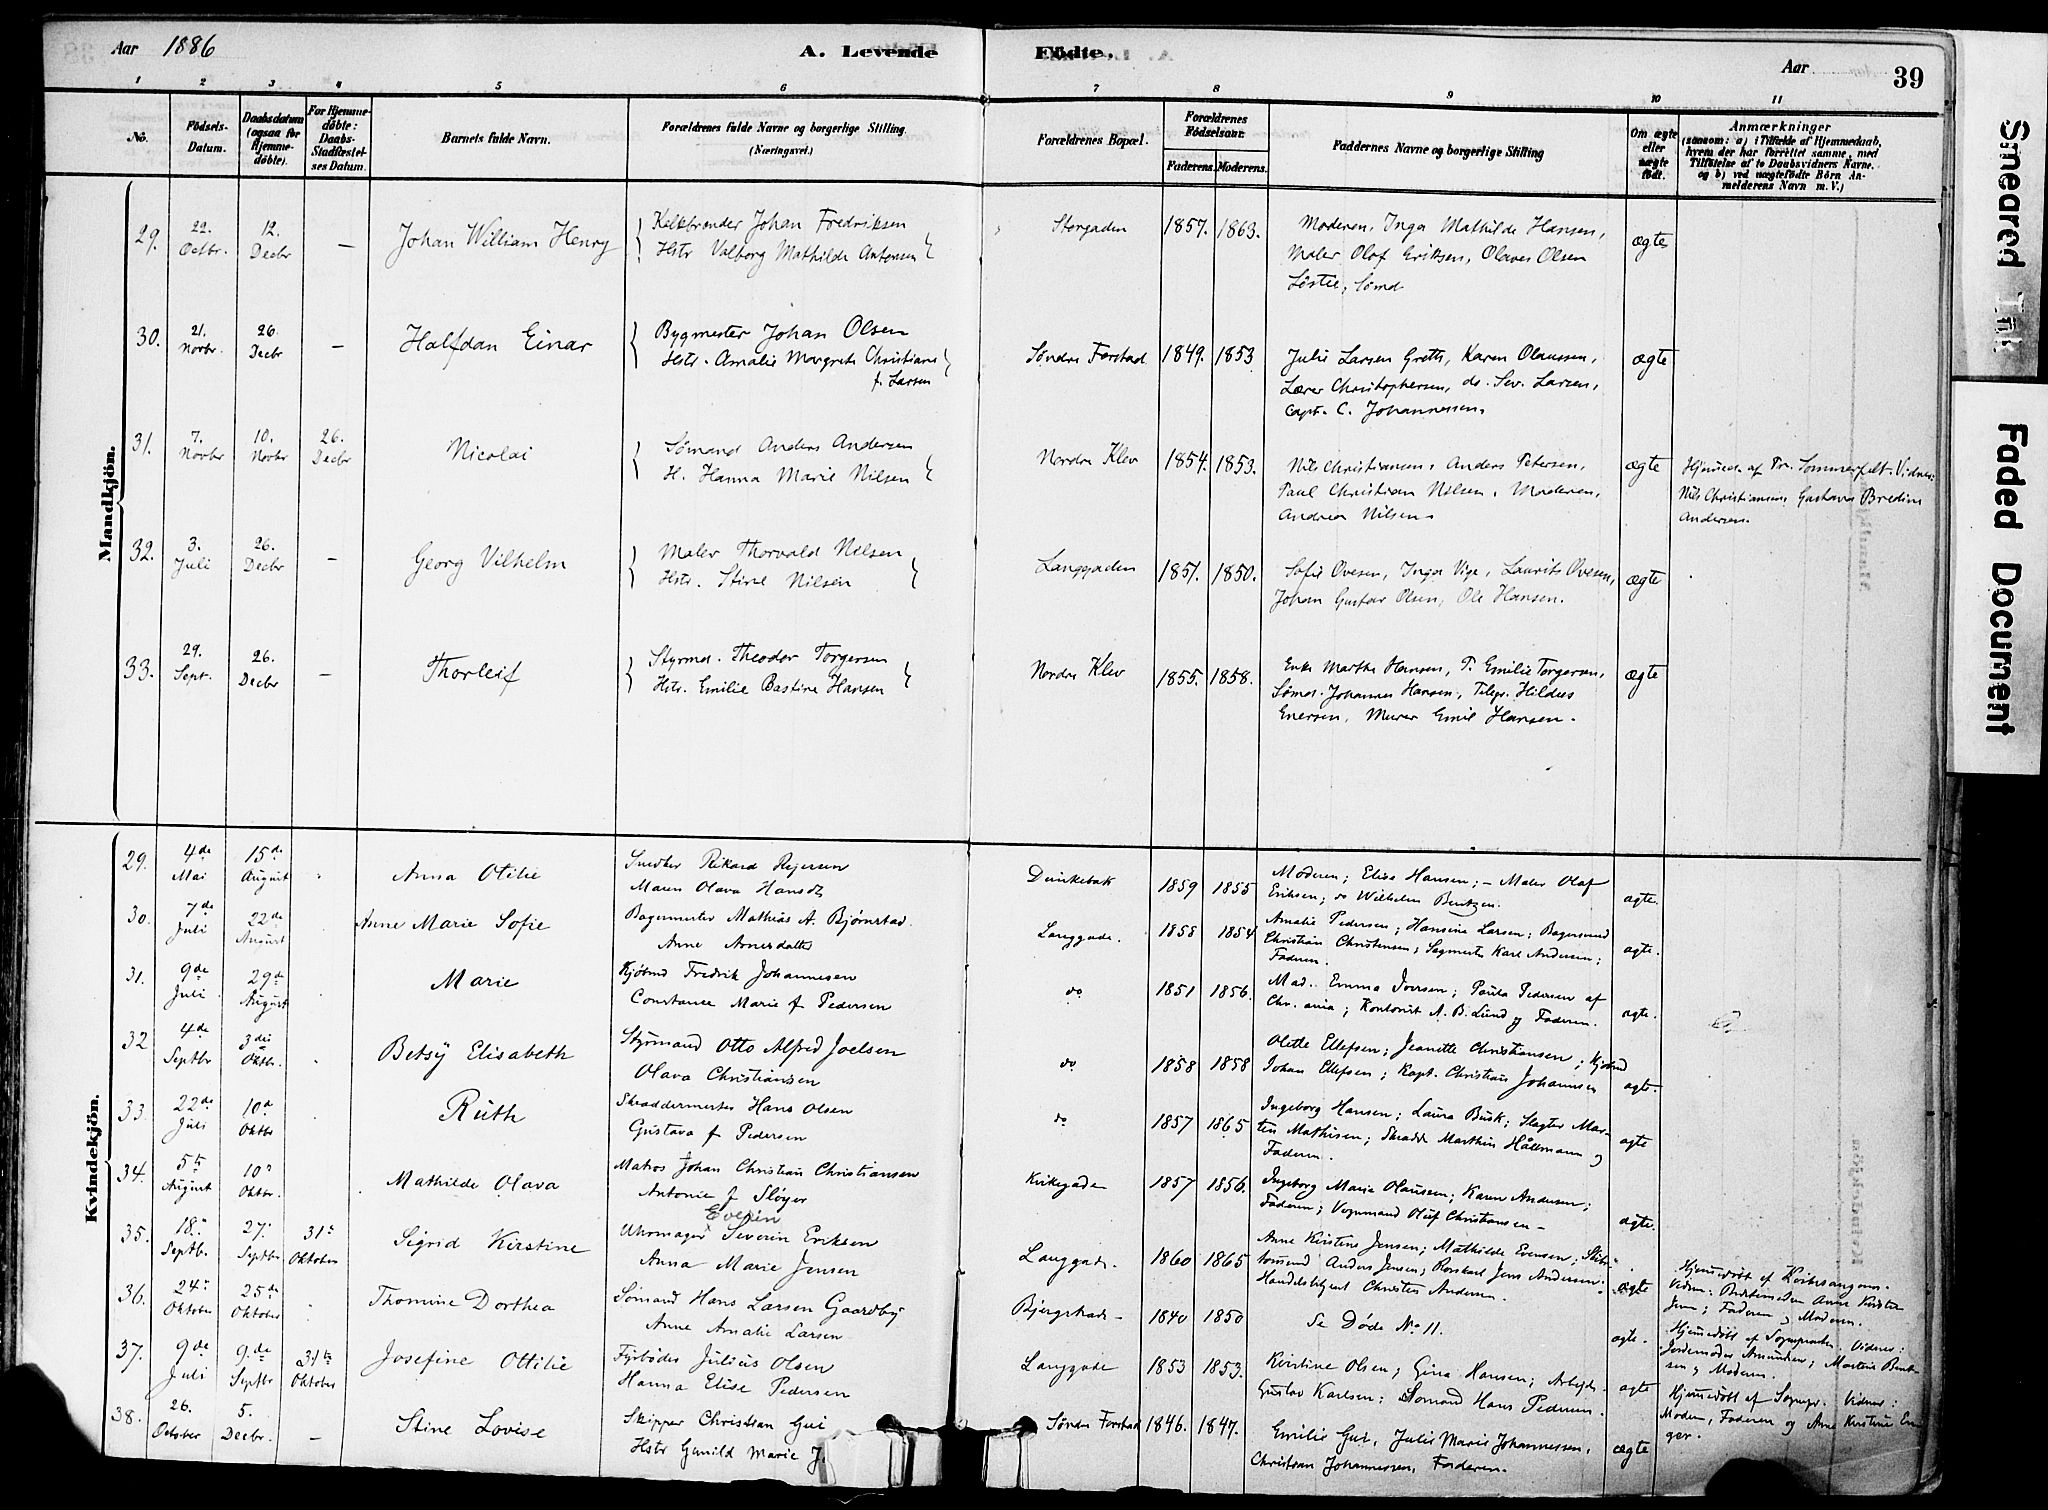 Aar 1886
A. Levende Födte.
Aar
39
1 2 3 4 5 6 7 8 9 10 11
No.
Födsels-Datum.
Daabsdatum (ogsaa for Hjemmedöbte).
For Hjemmedöbte: Daabs-Stadfæstelses Datum.
Barnets fulde Navn.
Forældrenes fulde Navne og borgerlige Stilling. (Næringsvei.)
Forældrenes Bopæl.
Forældrenes Födselsaar.
Faderens. Moderens.
Faddernes Navne og borgerlige Stilling
Om ægte eller uægte födt.
Anmærkninger
(saasom: a) i Tilfælde af Hjemmedaab, hvem der har forrettet samme, med Tilföielse af to Daabsvidners Navne. og b) ved uægtefödte Börn Anmelderens Navn m. V.)
Mandkjön.
29. 22. Octbr. 12. Decbr — Johan William Henry
Kalkbrænder Johan Fredriksen
Hstr Valborg Mathilde Antonsen
Storgaden 1857. 1863.
Moderen, Inga Mathilde Hansen,
Maler Olof Eriksen, Olaves Olsen
ægte
30. 21. Novbr. 26. Decbr — Halfdan Einar
Bygmester Johan Olsen
Hstr. Amalie Margrete Christiane
f. Larsen
Søndre Forstad 1849. 1853
Julie Larsen Grette, Karen Olaussen,
Lærer Christophersen, do. Sev. Larsen,
Capt. C. Johannessen.
ægte
31. 7. Novbr 10. Novbr 26. Decbr Nicolai
Sømand Anders Andersen
H. Hanna Marie Nilsen
Nordre Klev 1854. 1853.
Nils Christiansen, Anders Petersen,
Paul Christian Nilsen, Moderen,
Andrea Nilsen.
ægte
Hjemmed. af Pr. Sommerfelt. Vidner:
Nils Christiansen, Gustava Bredine
Andersen.
32. 3. Juli 26. Decbr — Georg Vilhelm
Maler Thorvald Nilsen
Hstr. Stine Nilsen
Langgaden 1851. 1850.
Sofie Ovesen, Inga Vige, Laurits Ovesen,
Johan Gustav Olsen, Ole Hansen.
ægte
33. 29. Sept. 26. Decbr — Thorleif
Styrmd. Theodor Torgersen
Hstr. Emilie Bastine Hansen
Nordre Klev 1855. 1858.
Enke Marthe Hansen, P. Emilie Torgersen,
Sømd. Johannes Hansen, Telegr. Hildus
Enersen, Murer Emil Hansen.
ægte
Kvindekjön.
29. 4de Mai 15de August Anna Otilie
Snedker Rikard Rejersen
Maren Olava Hansdtr
1859 1855
Moderen; Elise Hansen; — Maler Olaf
Eriksen; do Wilhelm Bentzen.
ægte.
30. 7de Juli 22de August Anne Marie Sofie
Bagermester Mathias A. Bjørnstad.
Anne Arnesdatter
Langgade. 1858 1854
Amalie Pedersen; Hansine Larsen; Bagersvend
Christian Christensen; Sagmester Karl Andersen;
Faderen.
ægte.
31. 9de Juli 29de August Marie
Kjøbmd Fredrik Johannesen
Constance Marie f Pedersen
do 1851 1856.
Mad. Emma Iversen; Paula Pedersen af
Chr.ania; Kontorist A. B. Lund og Faderen.
ægte.
32 4de Septbr 3die Oktbr. Betsy Elisabeth
Styrmand Otto Alfred Joelsen
Olava Christiansen
do 1858 1858
Olette Ellefsen; Jeanette Christiansen; Kjøbmd
Johan Ellefsen; Kapt. Christian Johannsen
ægte.
33. 22de Juli 10de Oktbr Ruth
Skræddermester Hans Olsen
Gustava f Pedersen
do 1857 1865
Ingeborg Hansen; Laura Busk; Slagter Mar-
tin Mathisen; Skrædd Marthin Hållmann og
Faderen.
ægte
34. 5te August 10de Oktbr. Mathilde Olava
Matros Johan Christian Christiansen
Antonie f Sløyer
Kirkegade 1857 1856.
Ingeborg Marie Olausen; Karen Andersen;
Faderen; Vognmand Oluf Christiansen —
ægte.
35. 18. Septbr. 27. Septbr 31te Oktober Sigrid Kirstine
Evensen
Uhrmager Severin Eriksen
Anna Marie Jensen
Langgade. 1860 1865
Anne Kirstine Jensen; Mathilde Evensen; Skibs-
tømmd Anders Jensen; Rorskarl Jens Andersen.
Handelsbetjent Christen Andersen.
ægte
Hjemmedøbt af Kirkesangeren.
36. 24de Oktober 25de Oktober Thomine Dorthea
Sømand Hans Larsen Gaardby
Anne Amalie Larsen
Bjergstrade — 1840 1850
Se Døde No 11.
ægte.
Jensen; Faderen og Moderen.
37. 9de Juli 9de Septbr 31te Oktober Josefine Ottilie
Fyrbøder Julius Olsen
Hanna Elise Pedersen
Langgade 1853 1853.
Kirstine Olsen; Gina Hansen; Arbejds.
Gustav Karlsen; Sømand Hans Pedersen.
ægte
Hjemmedøbt af Sognepræsten. Vidner:
Jordemoder Amundsen; Martine Bent-
sen og Moderen.
38. 26. October 5. Decbr. — Stine Lovise
Skipper Christian Gui
Hstr Gunild Marie J.
Søndre Forstad 1846. 1847.
Emilie Gut, Julie Marie Johannessen,
Christian Johannessen, Faderen.
ægte
Hjemmedøbt af Sognepr. Vidner:
Moder, Faderen og Anne Kristine En-
ger.
Smeared Ink
Faded Document